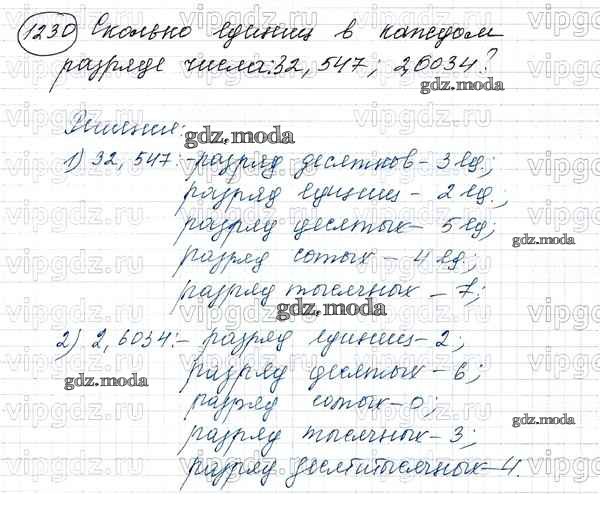 1230 Сколько единиц в каждом
разряде числа: 32,547; 2,6034?
Решение:
1) 32,547: - разряд десятков - 3 ед.;
разряд единиц - 2 ед.;
разряд десятых - 5 ед;
разряд сотых - 4 ед.;
разряд тысячных - 7;
2) 2,6034: - разряд единиц - 2;
разряд десятых - 6;
разряд сотых - 0;
разряд тысячных - 3;
разряд десятитысячных - 4.
gdz.moda
gdz.moda
gdz.moda
gdz.moda
gdz.moda
gdz.moda
vipgdz.ru